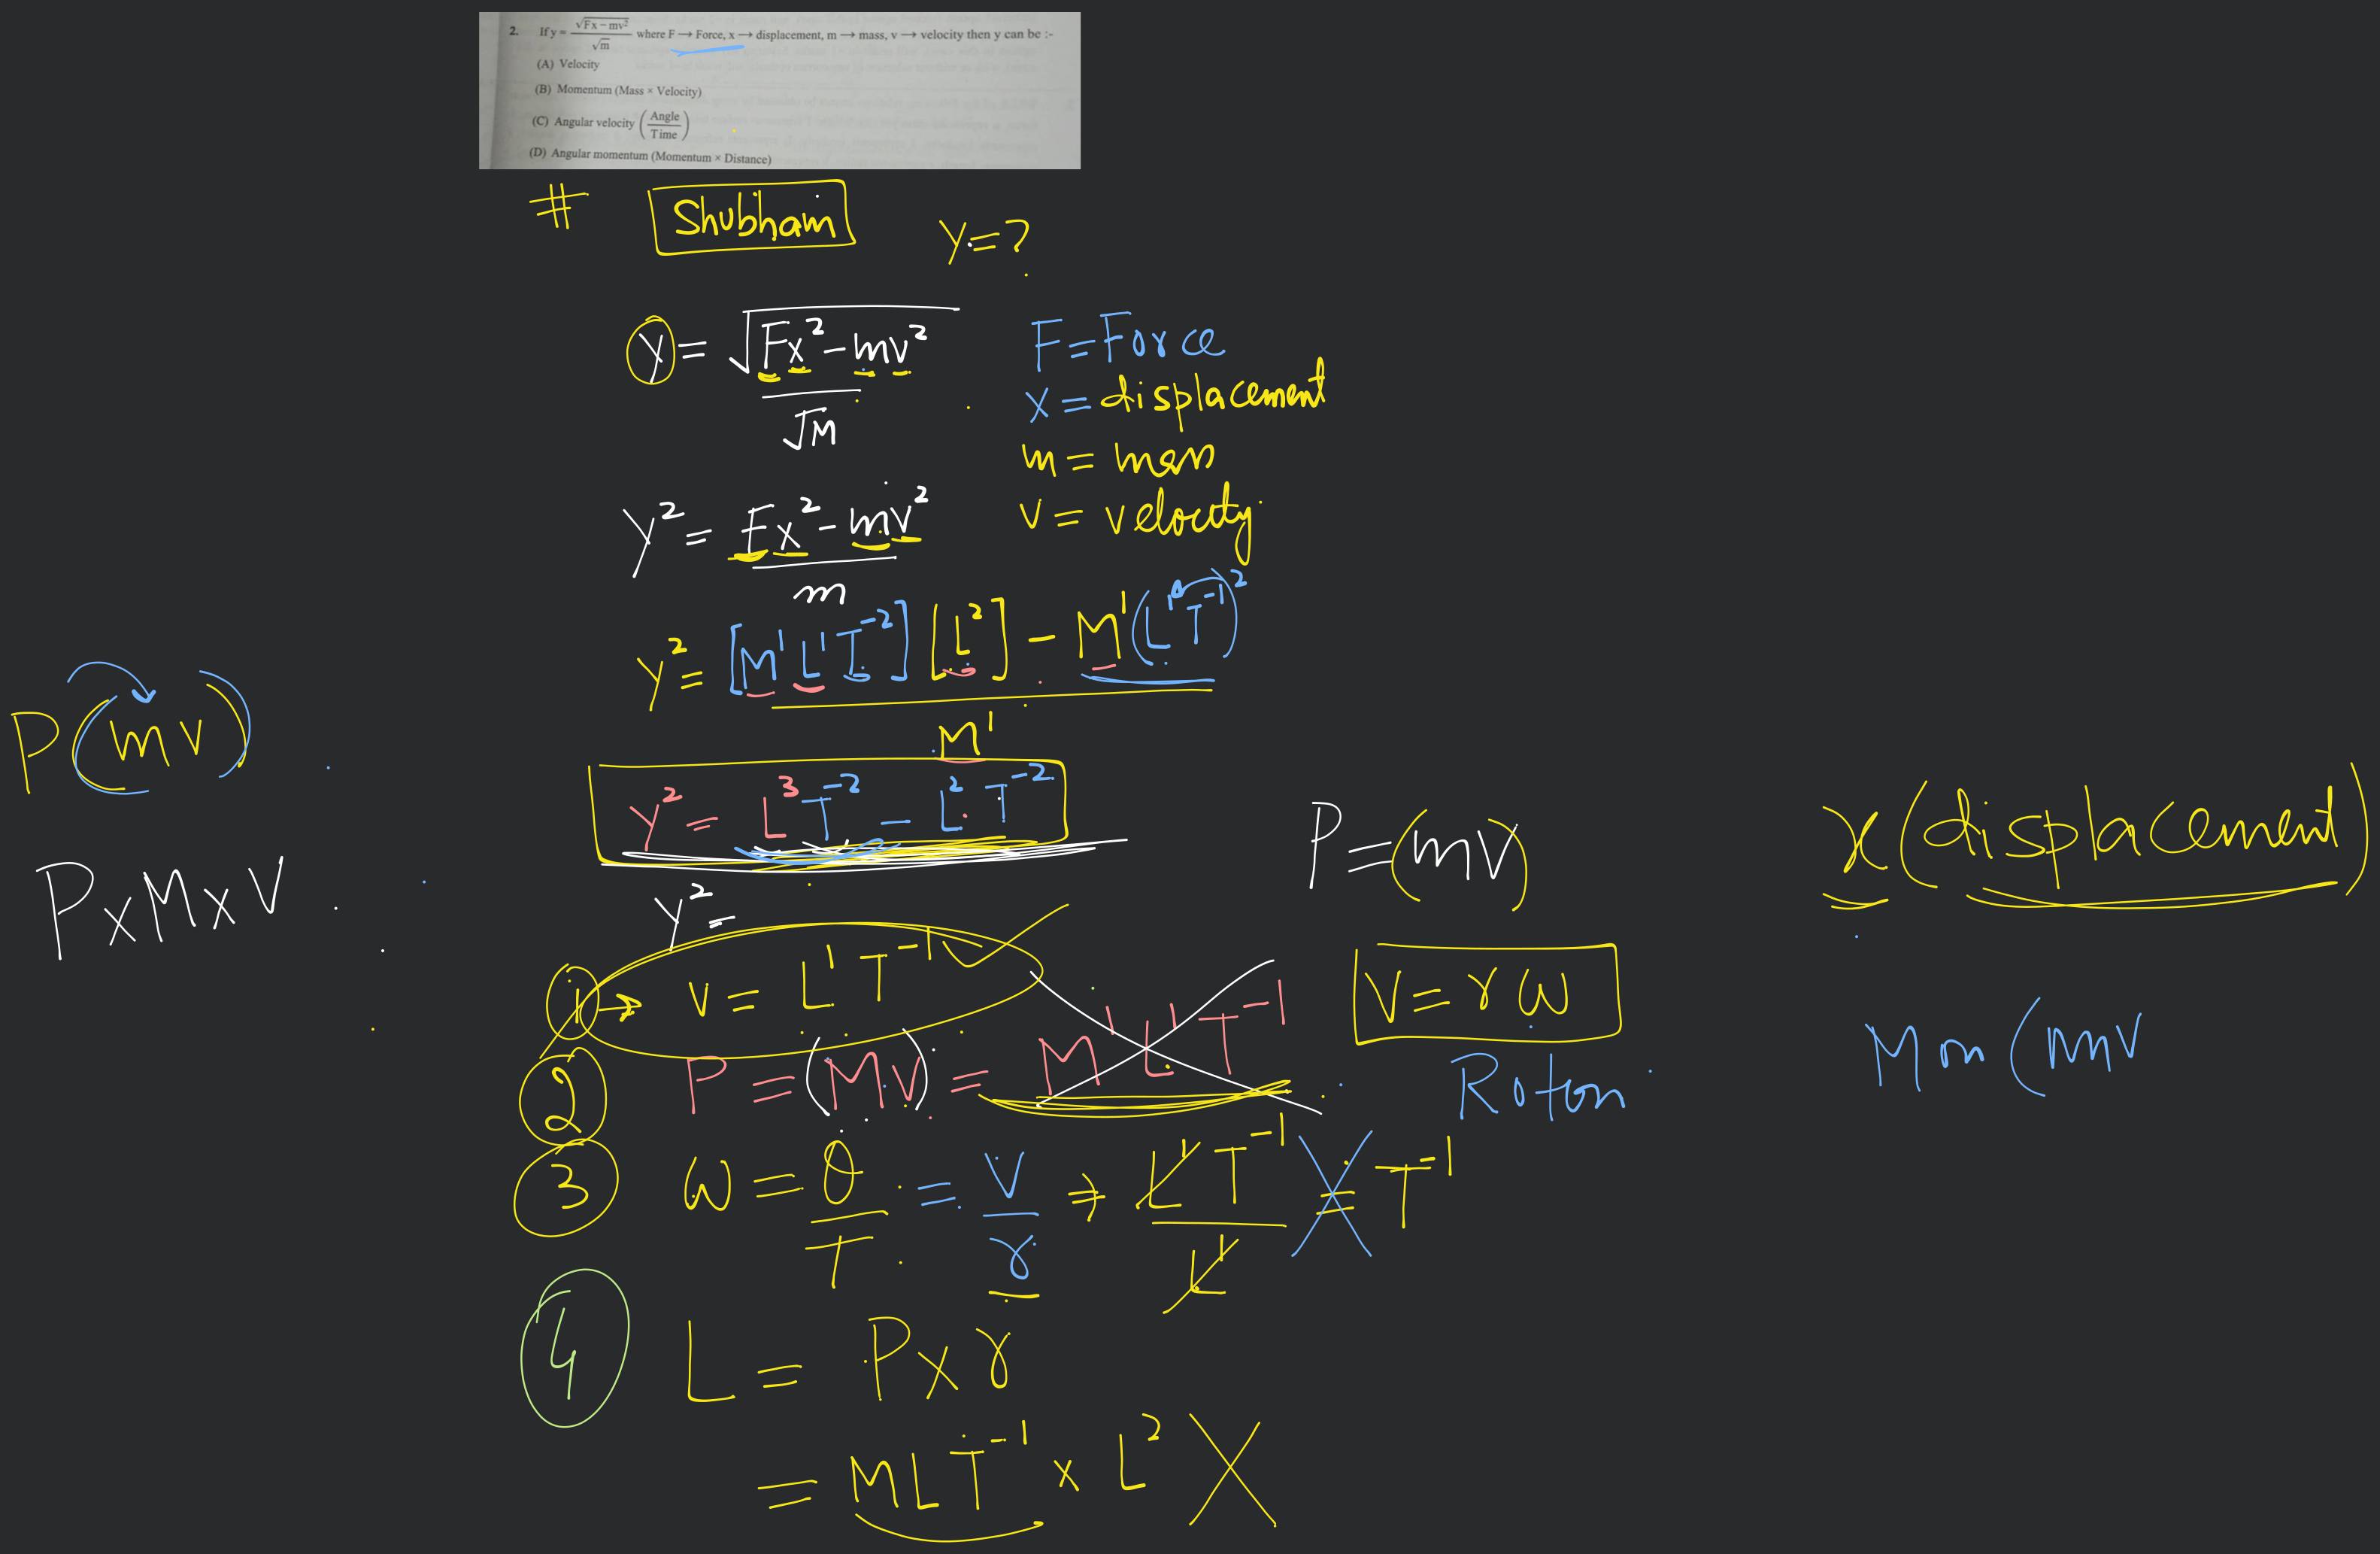 2. If y = √(Fx − mv²) / √m where F → Force, x → displacement, m → mass, v → velocity then y can be :-
(A) Velocity
(B) Momentum (Mass × Velocity)
(C) Angular velocity (Angle / Time)
(D) Angular momentum (Momentum × Distance)
# Shubham
y = ?
y = √(Fx² − mv²) / √m
F = Force
x = displacement
m = mass
v = velocity
y² = (Fx² − mv²) / m
y² = ([M¹L¹T⁻²] [L²] − M¹(L¹T⁻¹)²) / M¹
P(mv)
y² = L³T⁻² − L²T⁻²
P = (mv)
x (displacement)
P×M×V
y² =
1 → v = L¹T⁻¹
V = rω
2 P = (MV) = M¹L¹T⁻¹
(mv
3 ω = θ/T = V/r ⇒ L¹T⁻¹ / L¹ = T⁻¹
4 L = P×r
= MLT⁻¹ × L² X